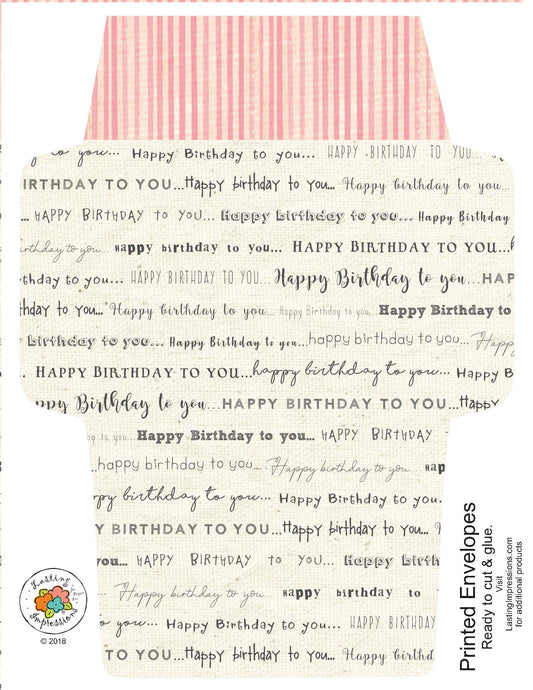 to you... Happy Birthday to you... HAPPY BIRTHDAY TO YOU...
IRTHDAY TO YOU...Happy birthday to you... Happy birthday to you...
... HAPPY BIRTHDAY TO YOU... Happy birthday to you... Happy Birthday
rthday to you... Happy birthday to you... HAPPY BIRTHDAY TO YOU...h
thday to you... HAPPY BIRTHDAY TO YOU... Happy Birthday to you... HAP
hday to you... Happy birthday to you... Happy Birthday to you... Happy Birthday to you...
birthday to you... Happy Birthday to you...happy birthday to you... Happy
HAPPY BIRTHDAY TO YOU...happy birthday to you... Happy B
ppy Birthday to you... HAPPY BIRTHDAY TO YOU...Happ
ay to you... Happy Birthday to you... HAPPY BIRTHDAY
...happy birthday to you... Happy birthday to you... Hap
ppy birthday to you... Happy Birthday to you...
BIRTHDAY TO YOU...Happy birthday to you... Happy
you... HAPPY BIRTHDAY TO YOU... Happy birth
... Happy birthday to you... Happy birthday to
ay to you... Happy Birthday to you... HAPPY BIRTHDAY
TO YOU...Happy birthday to you... Happy birthd
Lasting
Impressions
© 2018
Printed Envelopes
Ready to cut & glue.
Visit
LastingImpressions.com
for additional products